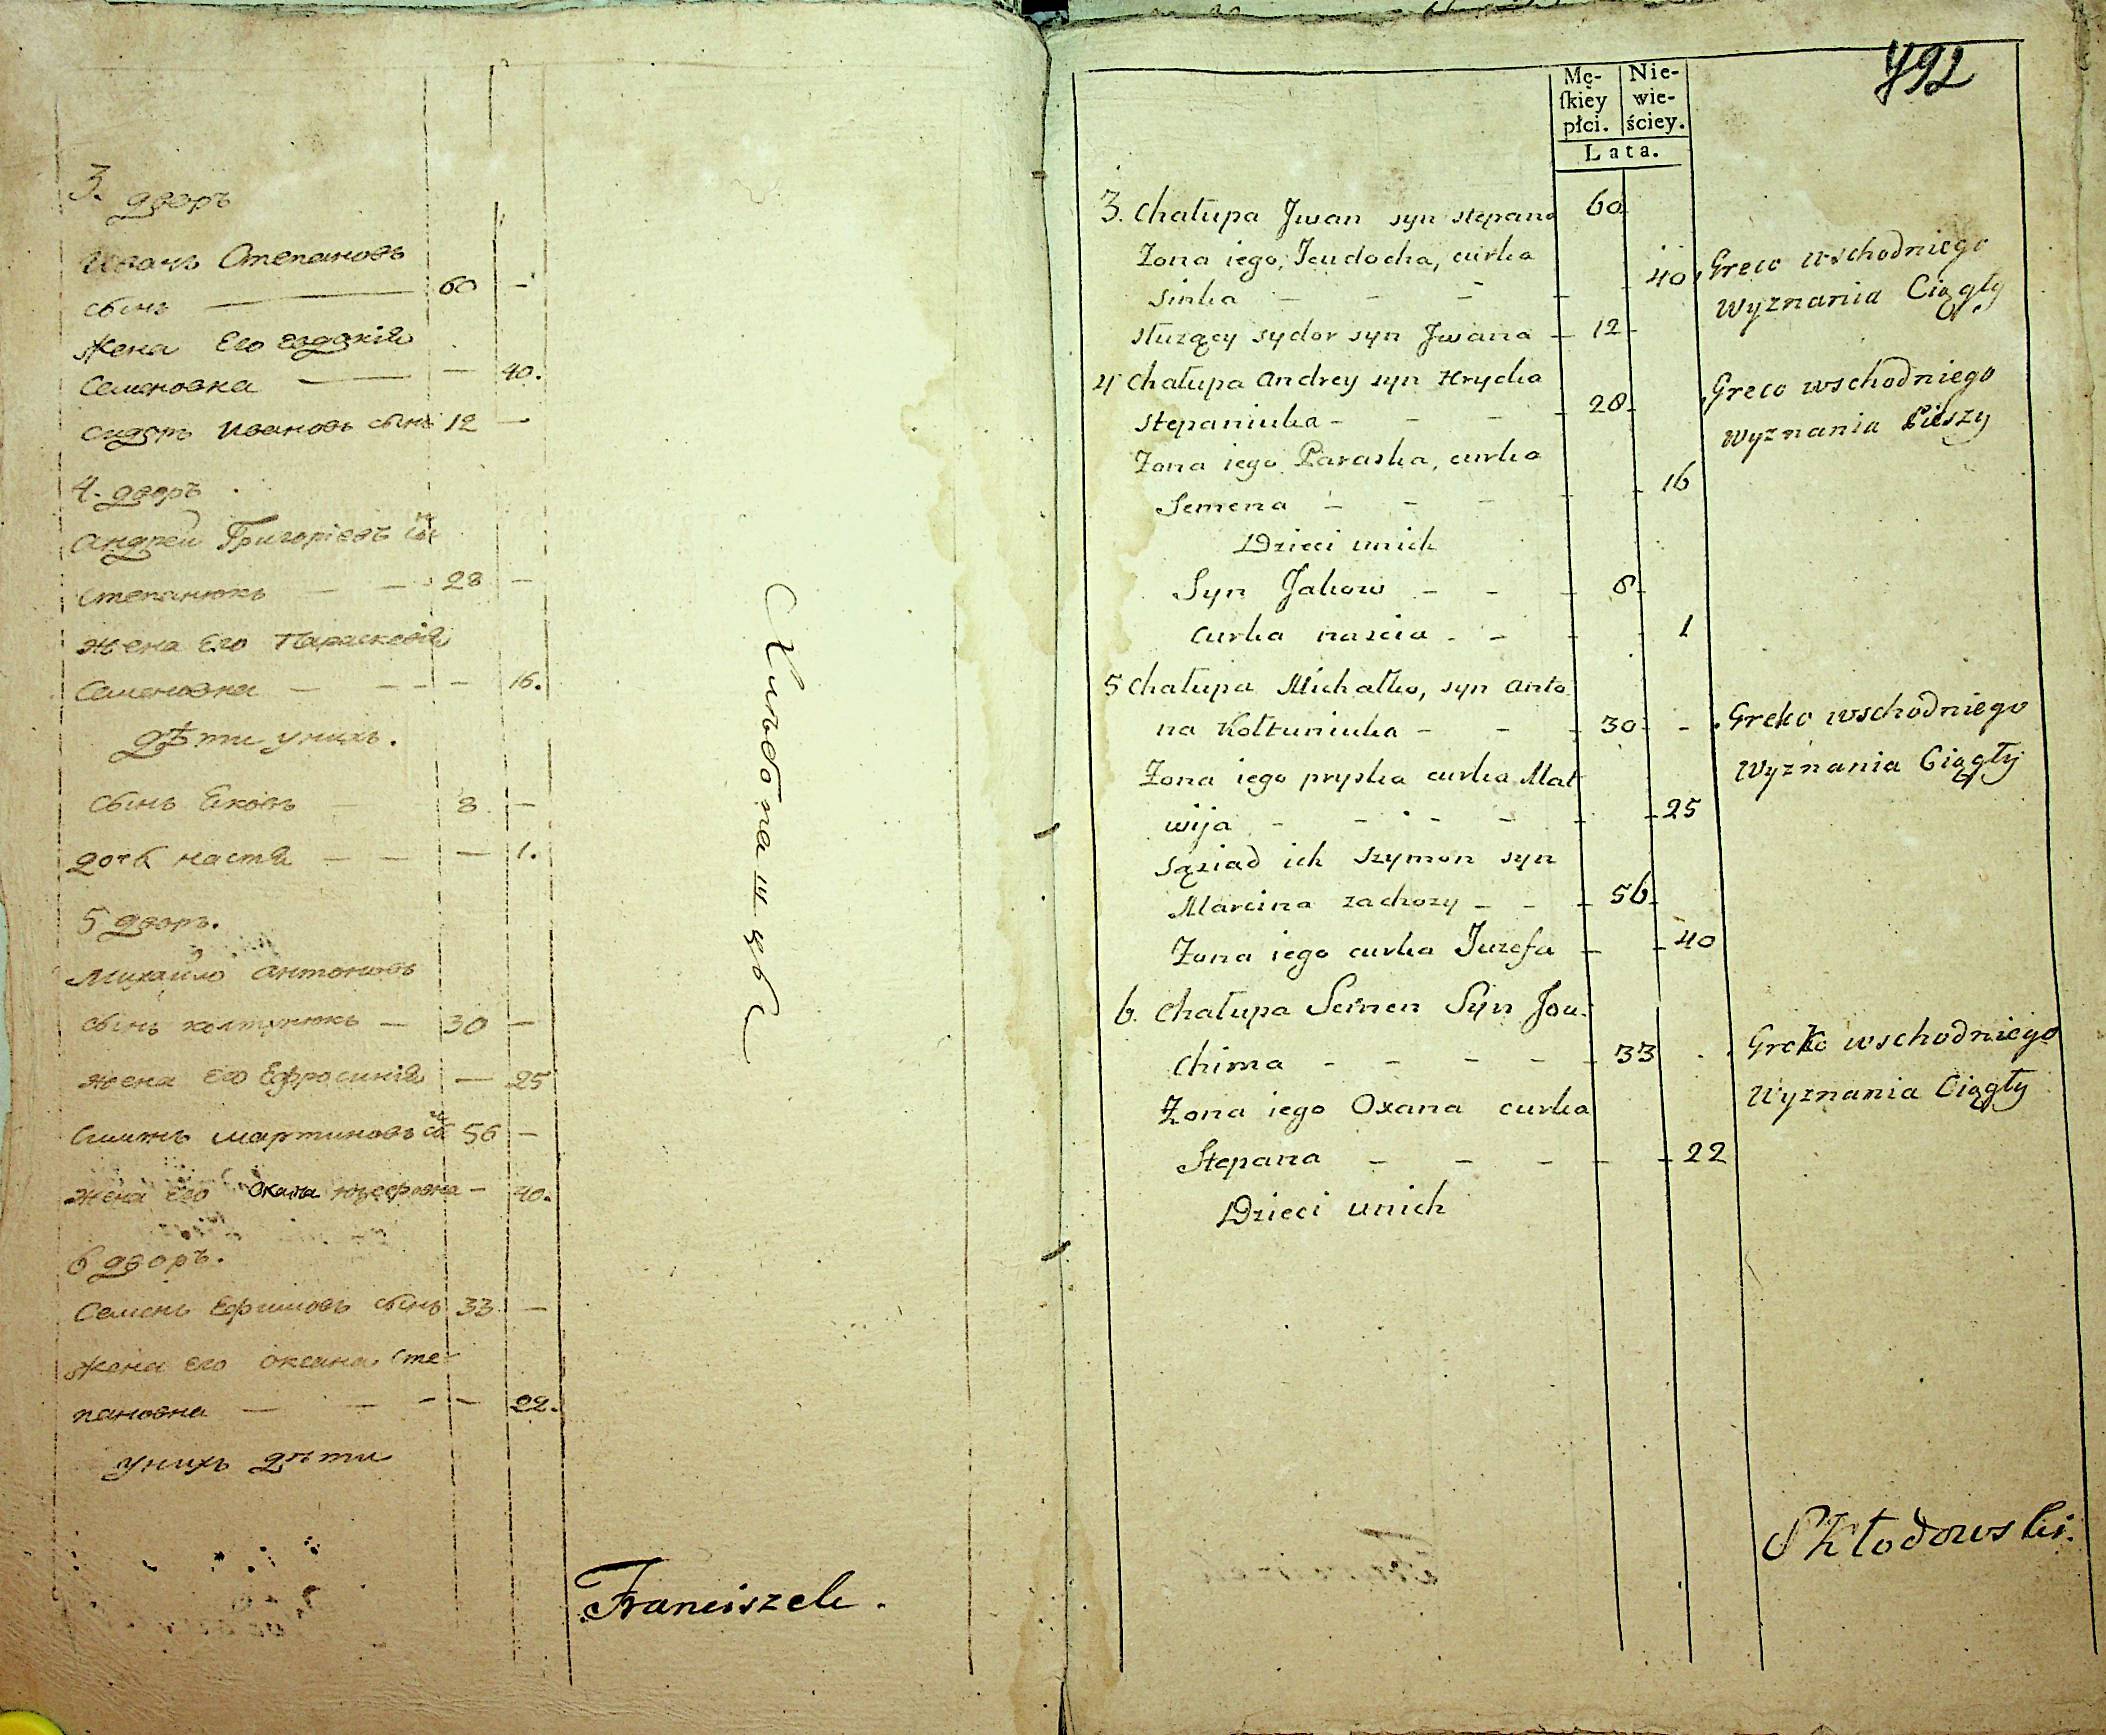 3. дворъ
Иванъ Степановъ
сынъ — 60 —
жена Его Евдокія
Семеновна — — 40.
Сидоръ Ивановъ сынъ 12 —
4. дворъ
Андрей Григоріевъ сы͏н
Степанюкъ — — 28 —
жена Его Парасковія
Семеновна — — — 16.
дѣти унихъ.
сынъ Яковъ — 8 —
дочь настя — — — 1.
5 дворъ.
Михайло антоновъ
сынъ колтунюкъ — 30 —
жена Его Ефросинія — 25
Симонъ мартиновъ сы͏н 56 —
жена Его Юзефовна — 40.
6 дворъ.
Семенъ Ефимовъ сынъ 33 —
жена Его Оксана Сте-
пановна — — — — 22.
унихъ дѣти
Franciszek.
492
Mę-
ſkiey
płci.
Nie-
wie-
ściey.
Lata.
3. Chałupa Jwan syn stępana 60
Żona iego, Jeudocha, curka
sinka — — — — 40
Greco wschodniego
Wyznania Ciągły
służący sydor syn Jwana — 12
4 Chałupa Andrey syn Hrycka
stepaniuka — — — 28
Greco wschodniego
Wyznania Pieszy
Żona iego Paraska, curka
Semena — — — 16
Dzieci unich
Syn Jakow — — — 8
curka nascia — — 1
5 Chałupa Michałko, syn Anto
na Kołtuniuka — — — 30 —
Greko wschodniego
Wyznania Ciągły
Żona iego pryska curka Mat
wija — — — — — 25
sąsiad ich szymon syn
Marcina zachozy — — — 56
Żona iego curka Juzefa — — 40
6. Chałupa Semen Syn Jou-
chima — — — — — 33
Greko wschodniego
Wyznania Ciągły
Żona iego Oxana curka
Stepana — — — — — 22
Dzieci unich
Skłodowski.